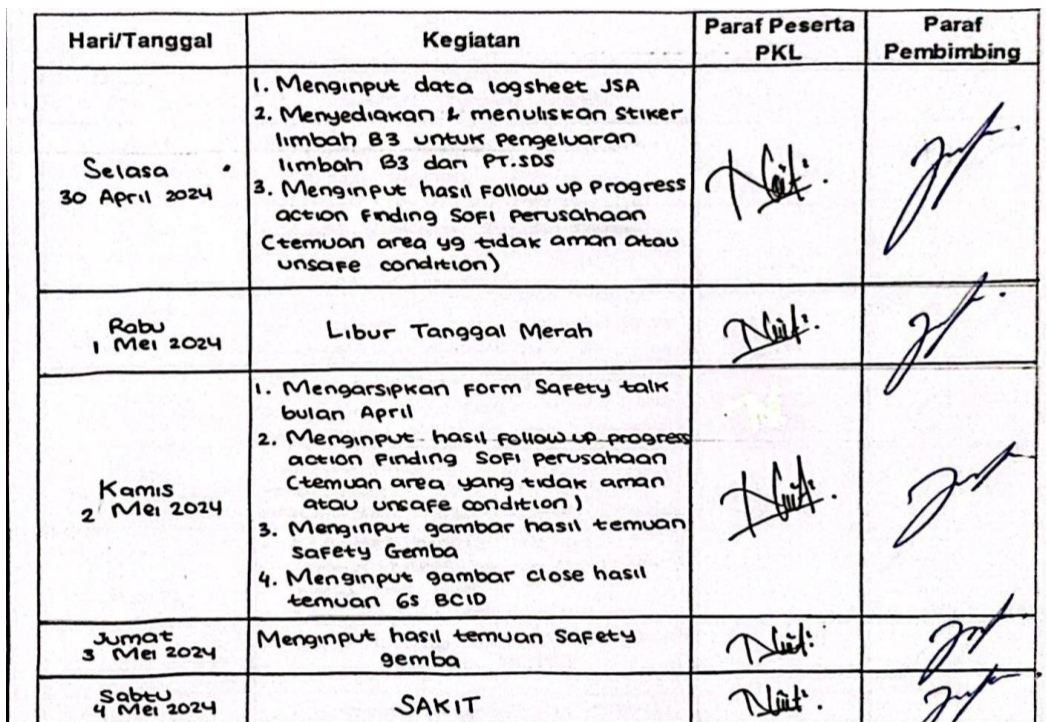 Hari/Tanggal
Kegiatan
Paraf Peserta
PKL
Paraf
Pembimbing
Selasa
30 April 2024
1. Menginput data logsheet JSA
2. Menyediakan & menuliskan stiker
limbah B3 untuk pengeluaran
limbah B3 dari PT.SDS
3. Menginput hasil Follow up Progress
action Finding SOFI Perusahaan
(temuan area yg tidak aman atau
unsafe condition)
Rabu
1 Mei 2024
Libur Tanggal Merah
Kamis
2 Mei 2024
1. Mengarsipkan Form Safety talk
bulan April
2. Menginput hasil Follow up progress
action Finding SOFI Perusahaan
(temuan area yang tidak aman
atau unsafe condition)
3. Menginput gambar hasil temuan
Safety Gemba
4. Menginput gambar close hasil
temuan 6s BCID
Jumat
3 Mei 2024
Menginput hasil temuan Safety
gemba
Sabtu
4 Mei 2024
SAKIT